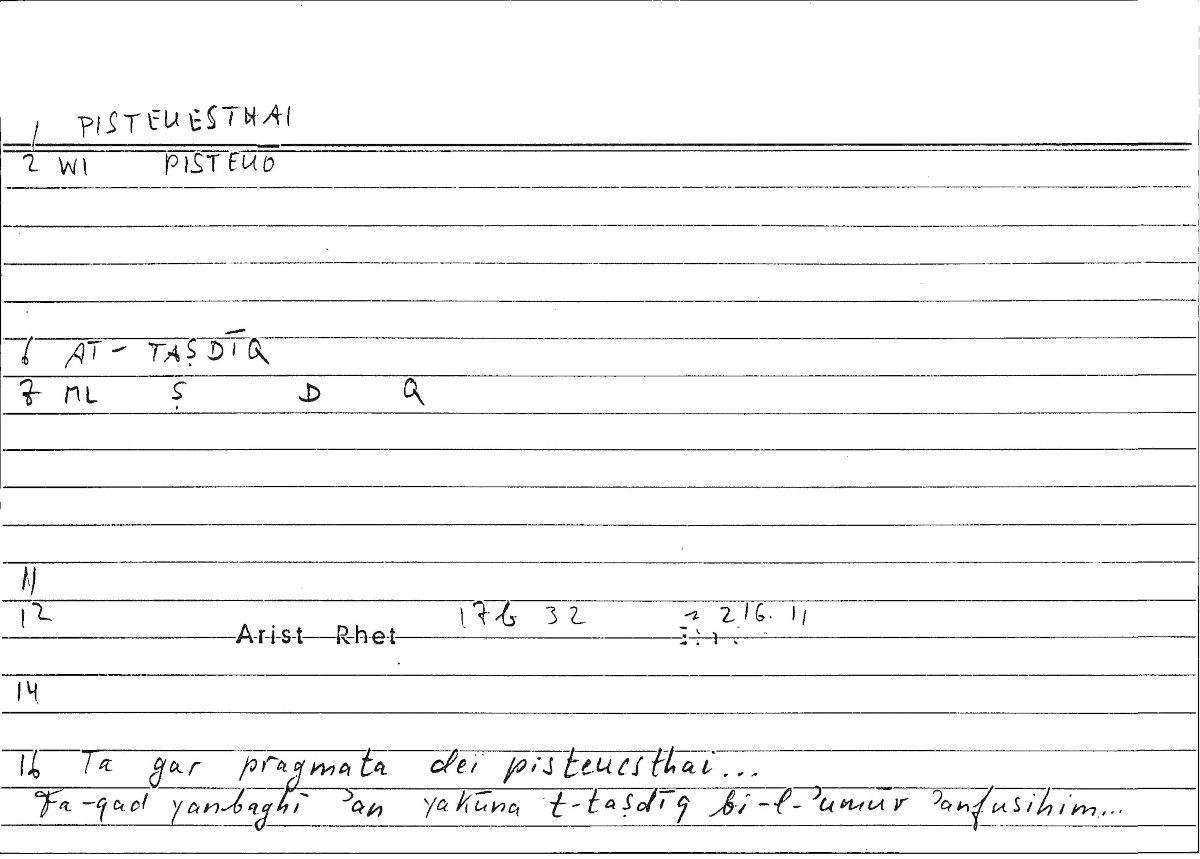 1 PISTEUESTHAI
2 WI PISTEUO
6 AT- TAṢDĪQ
7 ML Ṣ D Q
11
12 17b 32 ~ 216. 11
Arist Rhet
14
16 Ta gar pragmata dei pisteuesthai...
Fa-qad yanbaghī ʾan yakūna t-taṣdīq bi-l-ʾumūr ʾanfusihim...